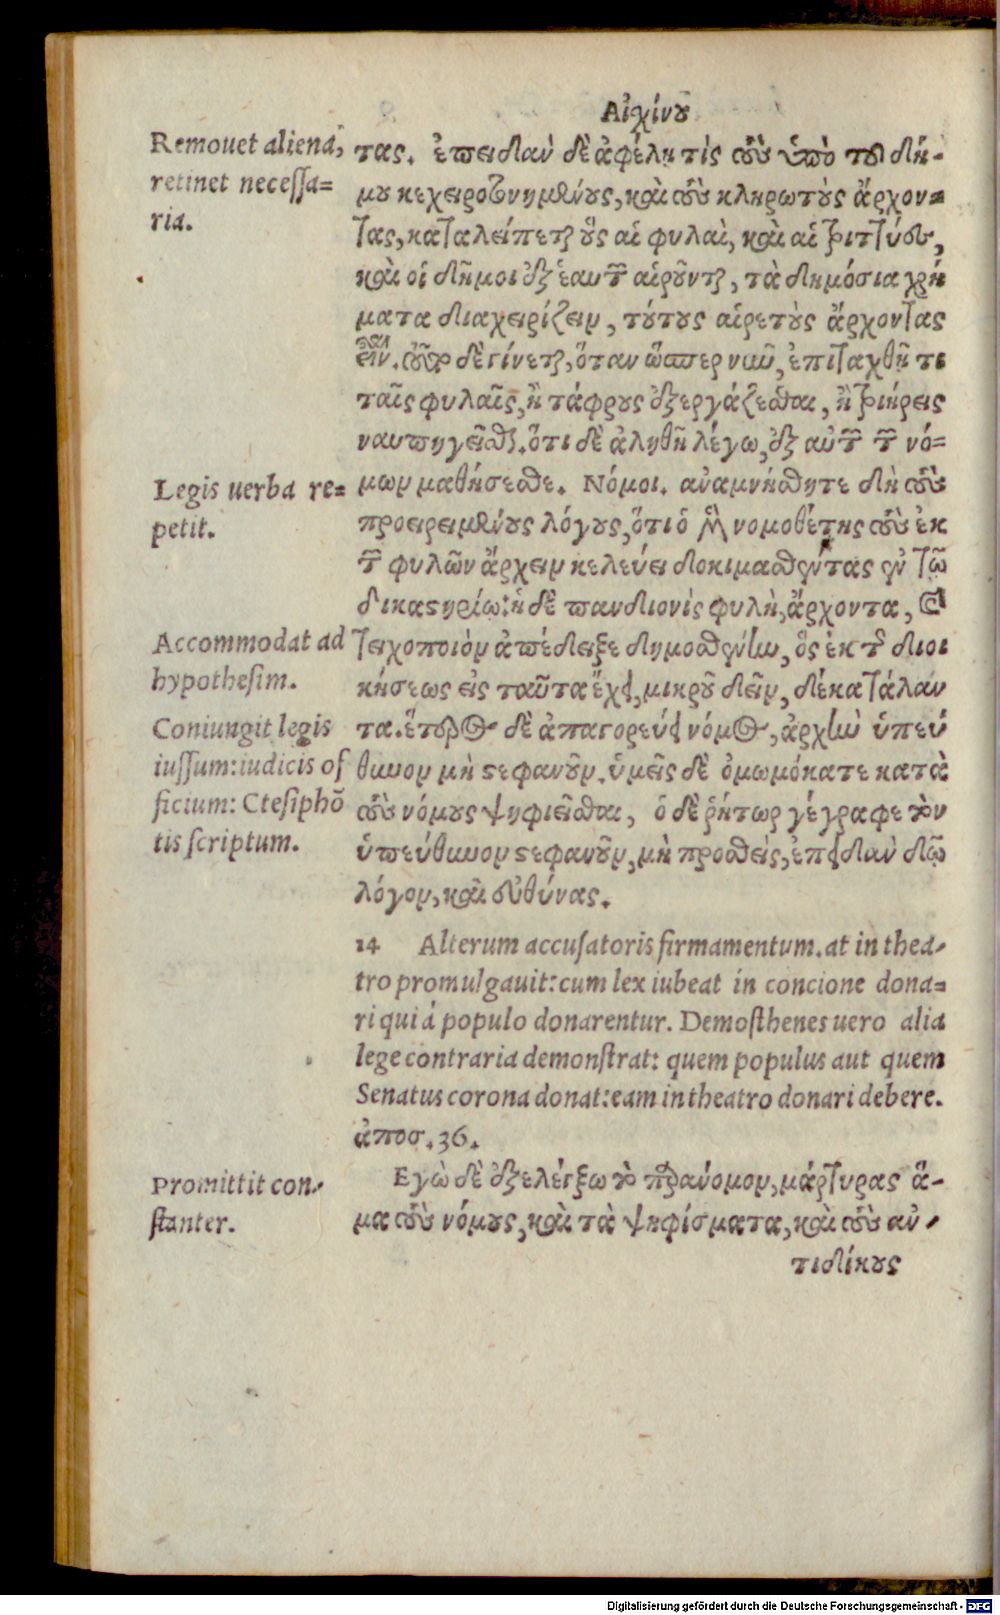 Αἰχίνου
Remouet aliena,
retinet necessa=
ria.
τας. ἐπειδὰν δὲ ἀφέλῃ τὶς τοὺς ὑπὸ τοῦ δή-
μου κεχειροτονημένους, καὶ τοὺς κληρωτοὺς ἄρχον=
τας, καταλείπεται οὓς αἱ φυλαὶ, καὶ αἱ τριττύες,
καὶ οἱ δῆμοι ἐξ ἑαυτῶν αἱροῦνται, τὰ δημόσια χρή
ματα διαχειρίζειν, τούτους αἱρετοὺς ἄρχοντας
εἶναι. τοῦτο δὲ γίνεται, ὅταν ὥσπερ νῦν, ἐπιταχθῇ τι
ταῖς φυλαῖς, ἢ τάφρους ἐξεργάζεσθαι, ἢ τριήρεις
ναυπηγεῖσθαι. ὅτι δὲ ἀληθῆ λέγω, ἐξ αὐτῶν τῶν νό=
Legis uerba re=
petit.
μων μαθήσεσθε. Νόμοι. ἀναμνήσθητε δὴ τοὺς
προειρειμένους λόγους, ὅτι ὁ μὲν νομοθέτης τοὺς ἐκ
τῶν φυλῶν ἄρχειν κελεύει δοκιμασθέντας ἐν τῷ
δικαστηρίῳ: ἡ δὲ πανδιονὶς φυλὴ, ἄρχοντα, καὶ
Accommodat ad
hypothesim.
τειχοποιὸν ἀπέδειξε δημοσθένην, ὃς ἐκ τῆς διοι
κήσεως εἰς ταῦτα ἔχει, μικροῦ δεῖν, δέκα τάλαν
Coniungit legis
iussum: iudicis of
ficium: Ctesiphõ
tis scriptum.
τα. ἕτερος δὲ ἀπαγορεύει νόμος, ἀρχὴν ὑπεύ
θυνον μὴ στεφανοῦν. ὑμεῖς δὲ ὀμωμόκατε κατὰ
τοὺς νόμους ψηφιεῖσθαι, ὁ δὲ ῥήτωρ γέγραφε τὸν
ὑπεύθυνον στεφανοῦν, μὴ προσθεὶς, ἐπειδὰν δῷ
λόγον, καὶ εὐθύνας.
14 Alterum accusatoris firmamentum. at in thea-
tro promulgauit: cum lex iubeat in concione dona=
ri qui á populo donarentur. Demosthenes uero alia
lege contraria demonstrat: quem populus aut quem
Senatus corona donat: eam in theatro donari debere.
ἀποσ. 36.
Promittit con-
stanter.
Εγὼ δὲ ἐξελέγξω τὸ παράνομον, μάρτυρας ἅ-
μα τοὺς νόμους, καὶ τὰ ψηφίσματα, καὶ τοὺς ἀν-
τιδίκους
Digitalisierung gefördert durch die Deutsche Forschungsgemeinschaft - DFG